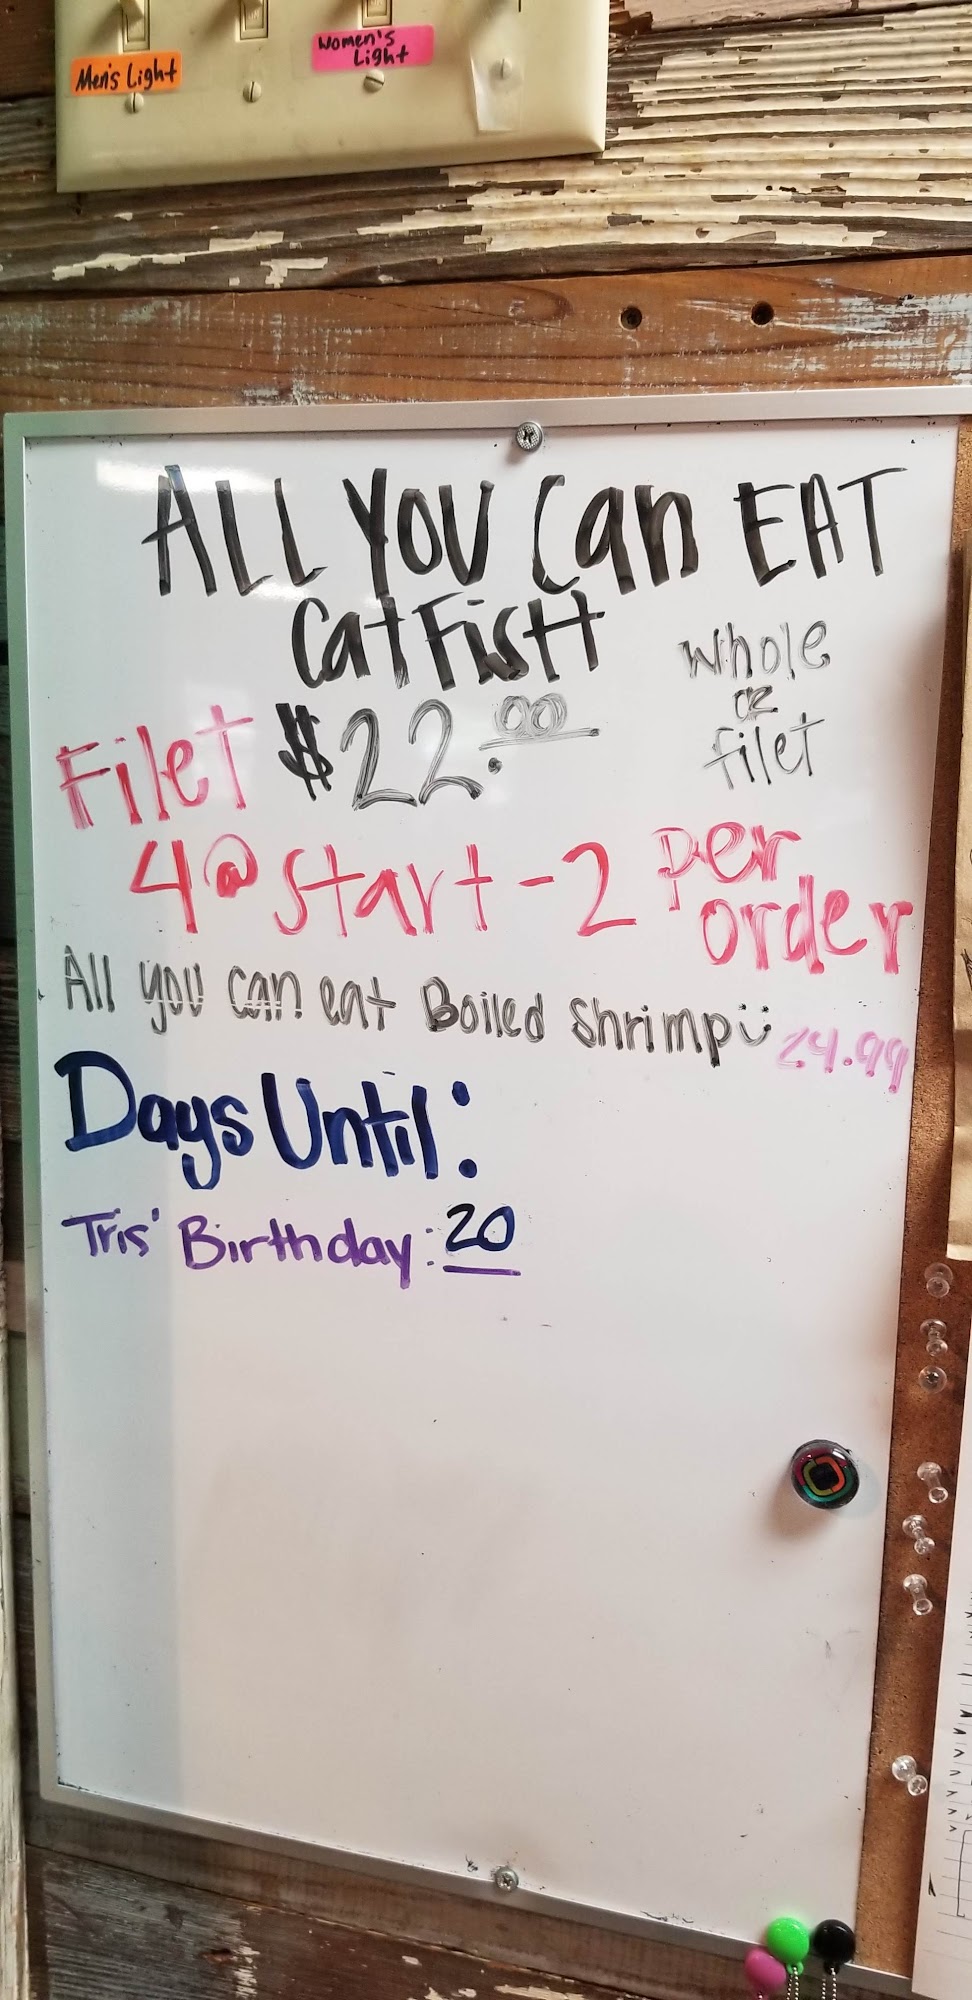 Men's Light
Women's
Light
ALL YOU Can EAT
CatFisH
whole
or
filet
Filet $22.00
4@ start - 2 per
order
All you can eat Boiled Shrimp 24.99
Days Until:
Tris' Birthday: 20